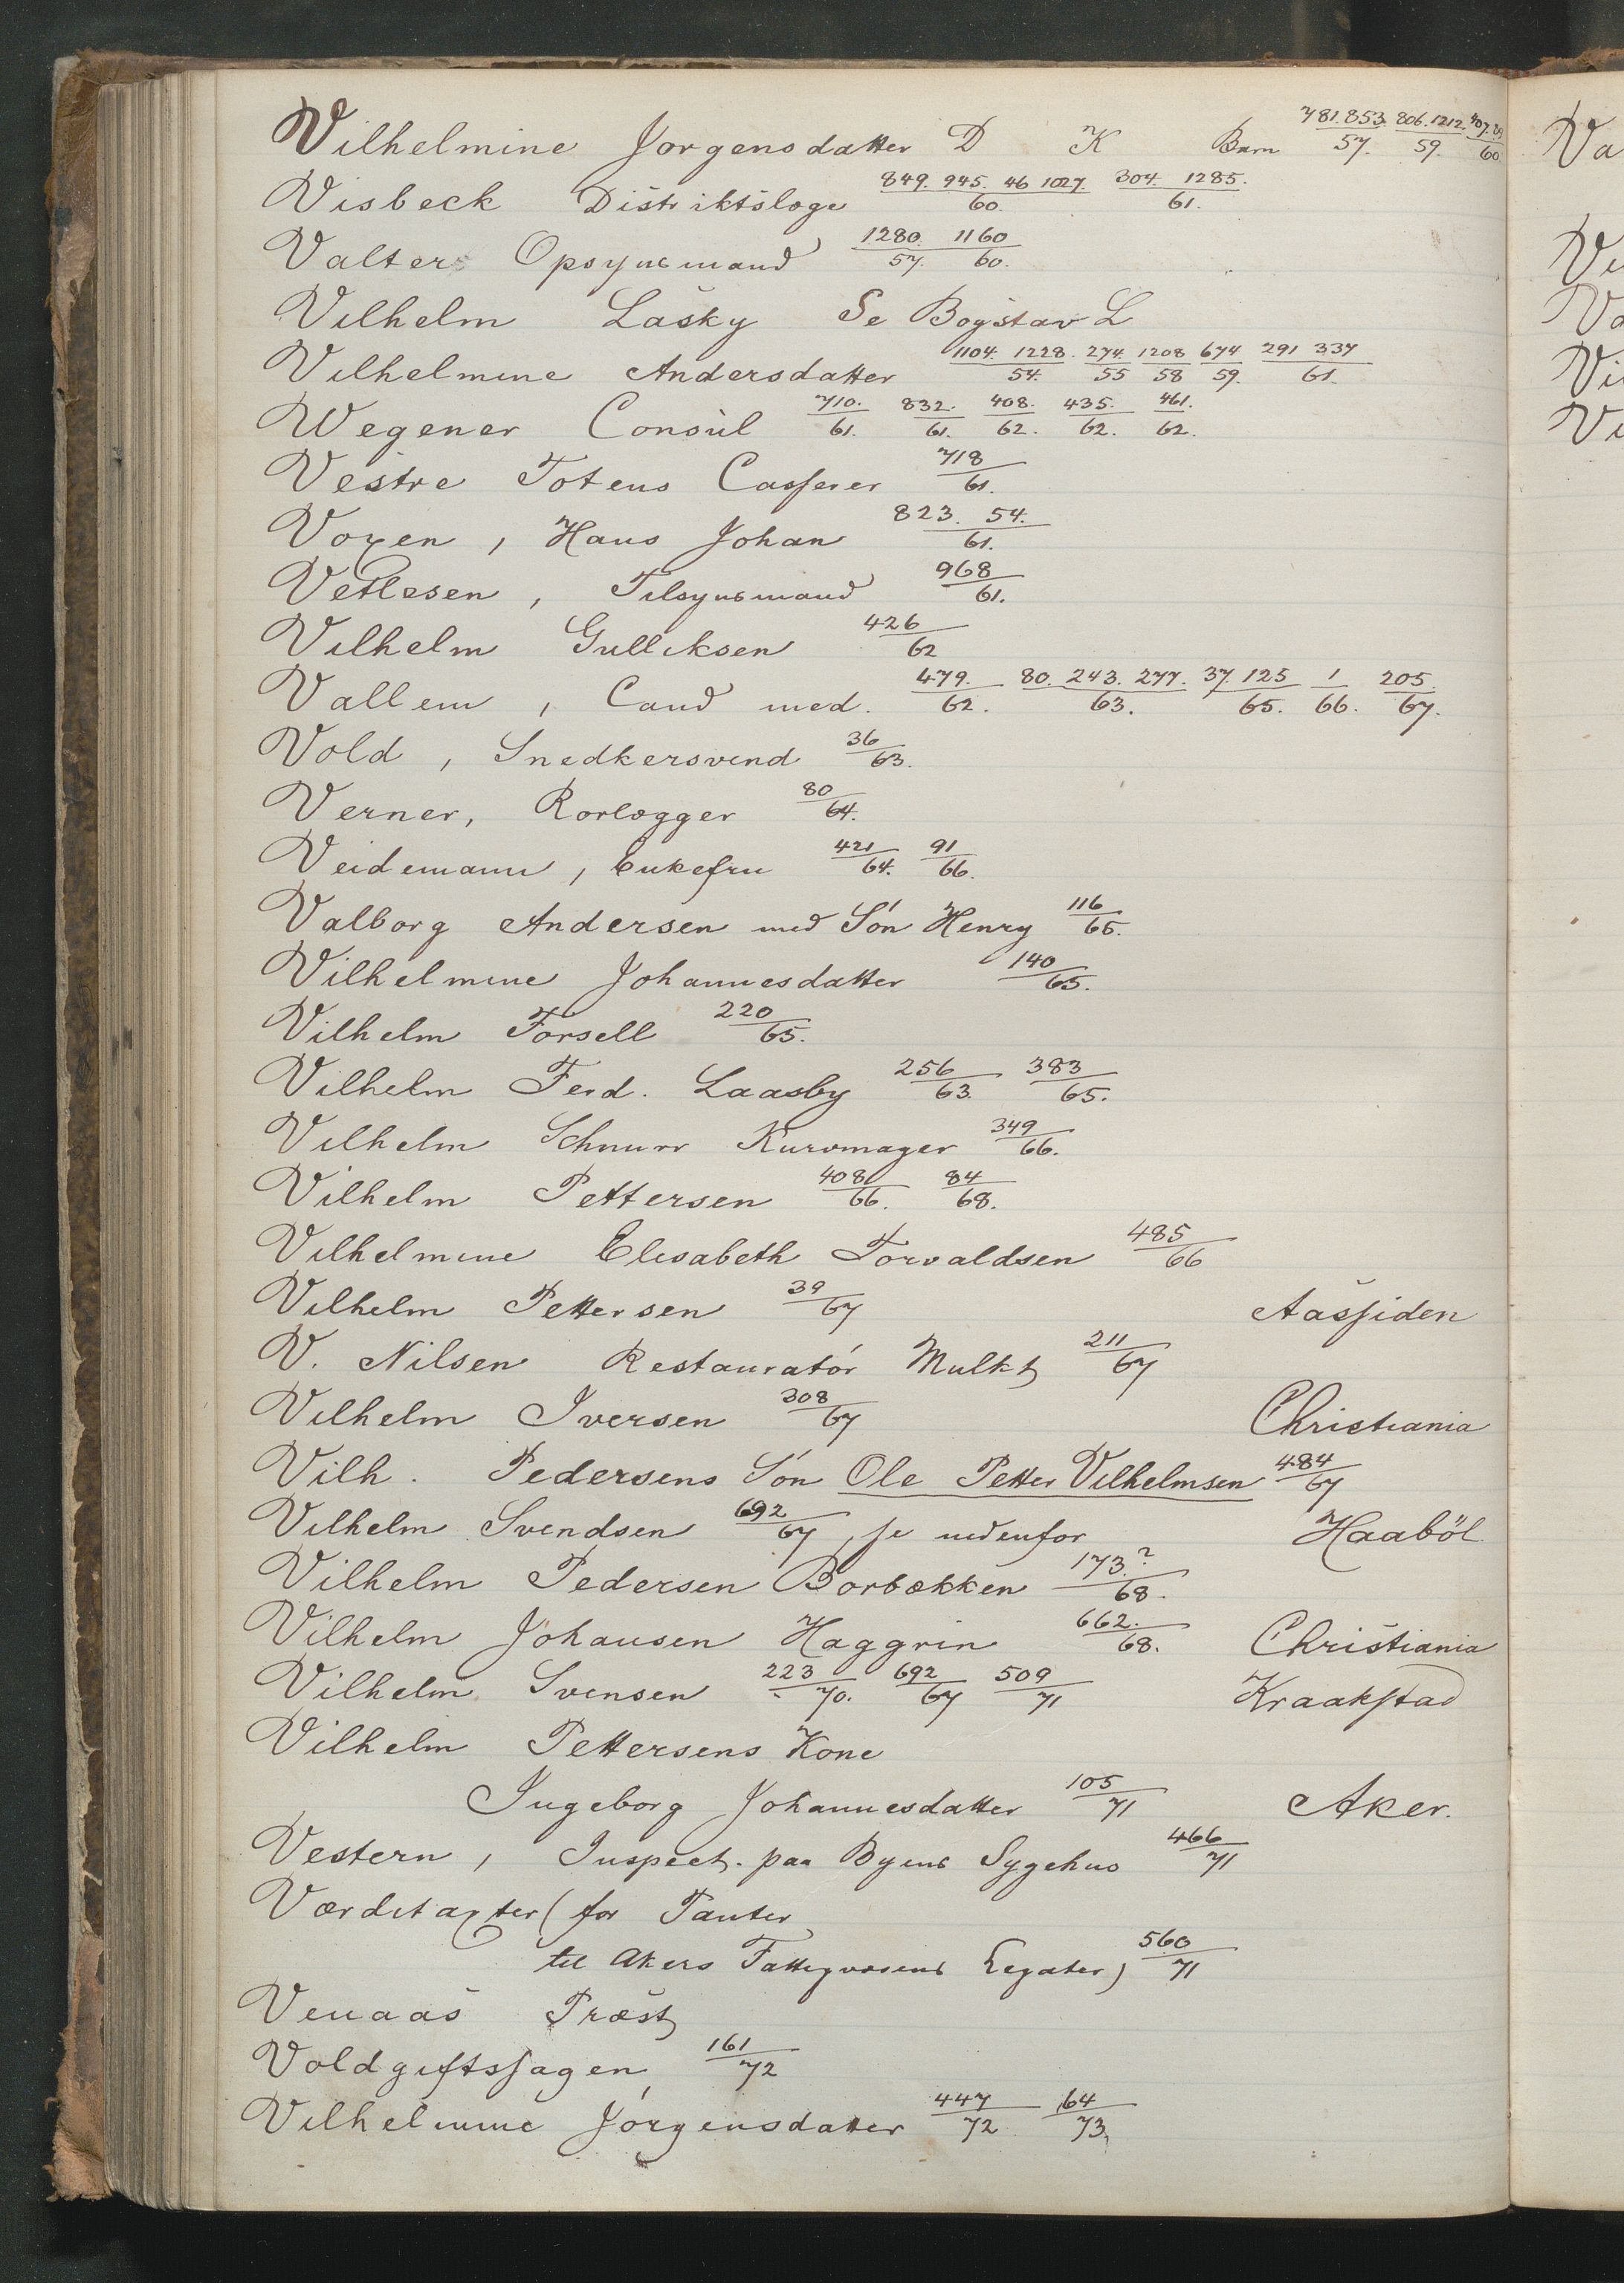 Vilhelmine Jorgensdatter D K Barn 781.853./57. 806.1212./59. /60
Visbeck Distriktslæge 849. 945. 46 1027./60. 304. 1285./61.
Valters Opsynsmand 1280./57. 1160/60.
Vilhelm Lasky Se Bogstav L
Vilhelmine Andersdatter 1104. 1228./54. 274./55 1208/58 674/59. 291 337/61.
Wegener Consul 710./61. 832./61. 408./62. 435./62. 461./62.
Vestre Totens Casserer 718/61.
Voxen, Hans Johan 823. 54./61.
Vetlesen, Tilsynsmand 968/61.
Vilhelm Gulliksen 426/62
Vallem, Cand med. 479./62. 80. 243. 277./63. 37. 125/65. 1/66. 205./67.
Vold, Snedkersvend 36/63.
Verner, Rorlægger 80/64.
Veidemann, Enkefru 421/64. 91/66.
Valborg Andersen med Són Henry 116/65.
Vilhelmine Johannesdatter 140/65.
Vilhelm Forsell 220/65.
Vilhelm Ferd. Laasby 256/63. 383/65.
Vilhelm Schnurr Kurvmager 349/66.
Vilhelm Pettersen 408/66. 84/68.
Vilhelmine Elisabeth Torvaldsen 485/66
Vilhelm Pettersen 39/67 Aassiden
V. Nilsen Restauratór Mulkt 211/67
Vilhelm Iversen 308/67 Christiania
Vilh. Pedersens Són Ole Petter Vilhelmsen 484/67
Vilhelm Svendsen 692/67, se nedenfor Haaböl
Vilhelm Pedersen Borbækken 173?/68.
Vilhelm Johansen Haggrin 662./68. Christiania
Vilhelm Svensen 223/70. 692/67 509/71 Kraakstad
Vilhelm Pettersens Kone
Ingeborg Johannesdatter 105/71 Aker.
Vestern, Inspect. paa Byens Sygehus 466/71
Værditaxter (for Panter
til Akers Fattigvæsens Legater) 560/71
Venaas Præst
Voldgiftssagen 161/72
Vilhelmine Jórgensdatter 447/72 64/73,
Va
Ve
Va
Vi
Vi